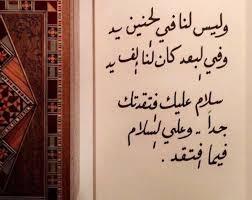 وليس لنا في الحنين يد
وفي البعد كان لنا ألف يد
سلام عليك فتقدتك
جداً .. وعلي السلام
فيما افتقد .